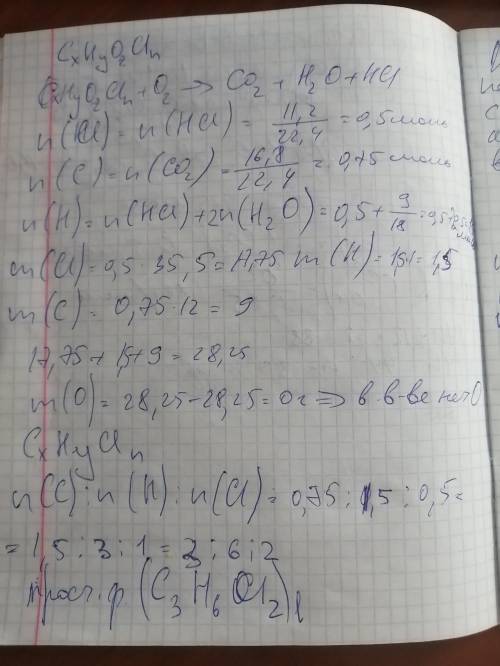 CxHyOzCln
CxHyOzCln + O₂ → CO₂ + H₂O + HCl
n(Cl) = n(HCl) = 11,2/22,4 = 0,5 моль
n(C) = n(CO₂) = 16,8/22,4 = 0,75 моль
n(H) = n(HCl) + 2n(H₂O) = 0,5 + 9/18
m(Cl) = 0,5 · 35,5 = 17,75 m(H) = 1,5·1 = 1,5
m(C) = 0,75 · 12 = 9
17,75 + 1,5 + 9 = 28,25
m(O) = 28,25 - 28,25 = 0 г ⇒ в в-ве нет O
CxHyCln
n(C) : n(H) : n(Cl) = 0,75 : 1,5 : 0,5 =
= 1,5 : 3 : 1 = 3 : 6 : 2
прост. ф. (C₃H₆Cl₂)